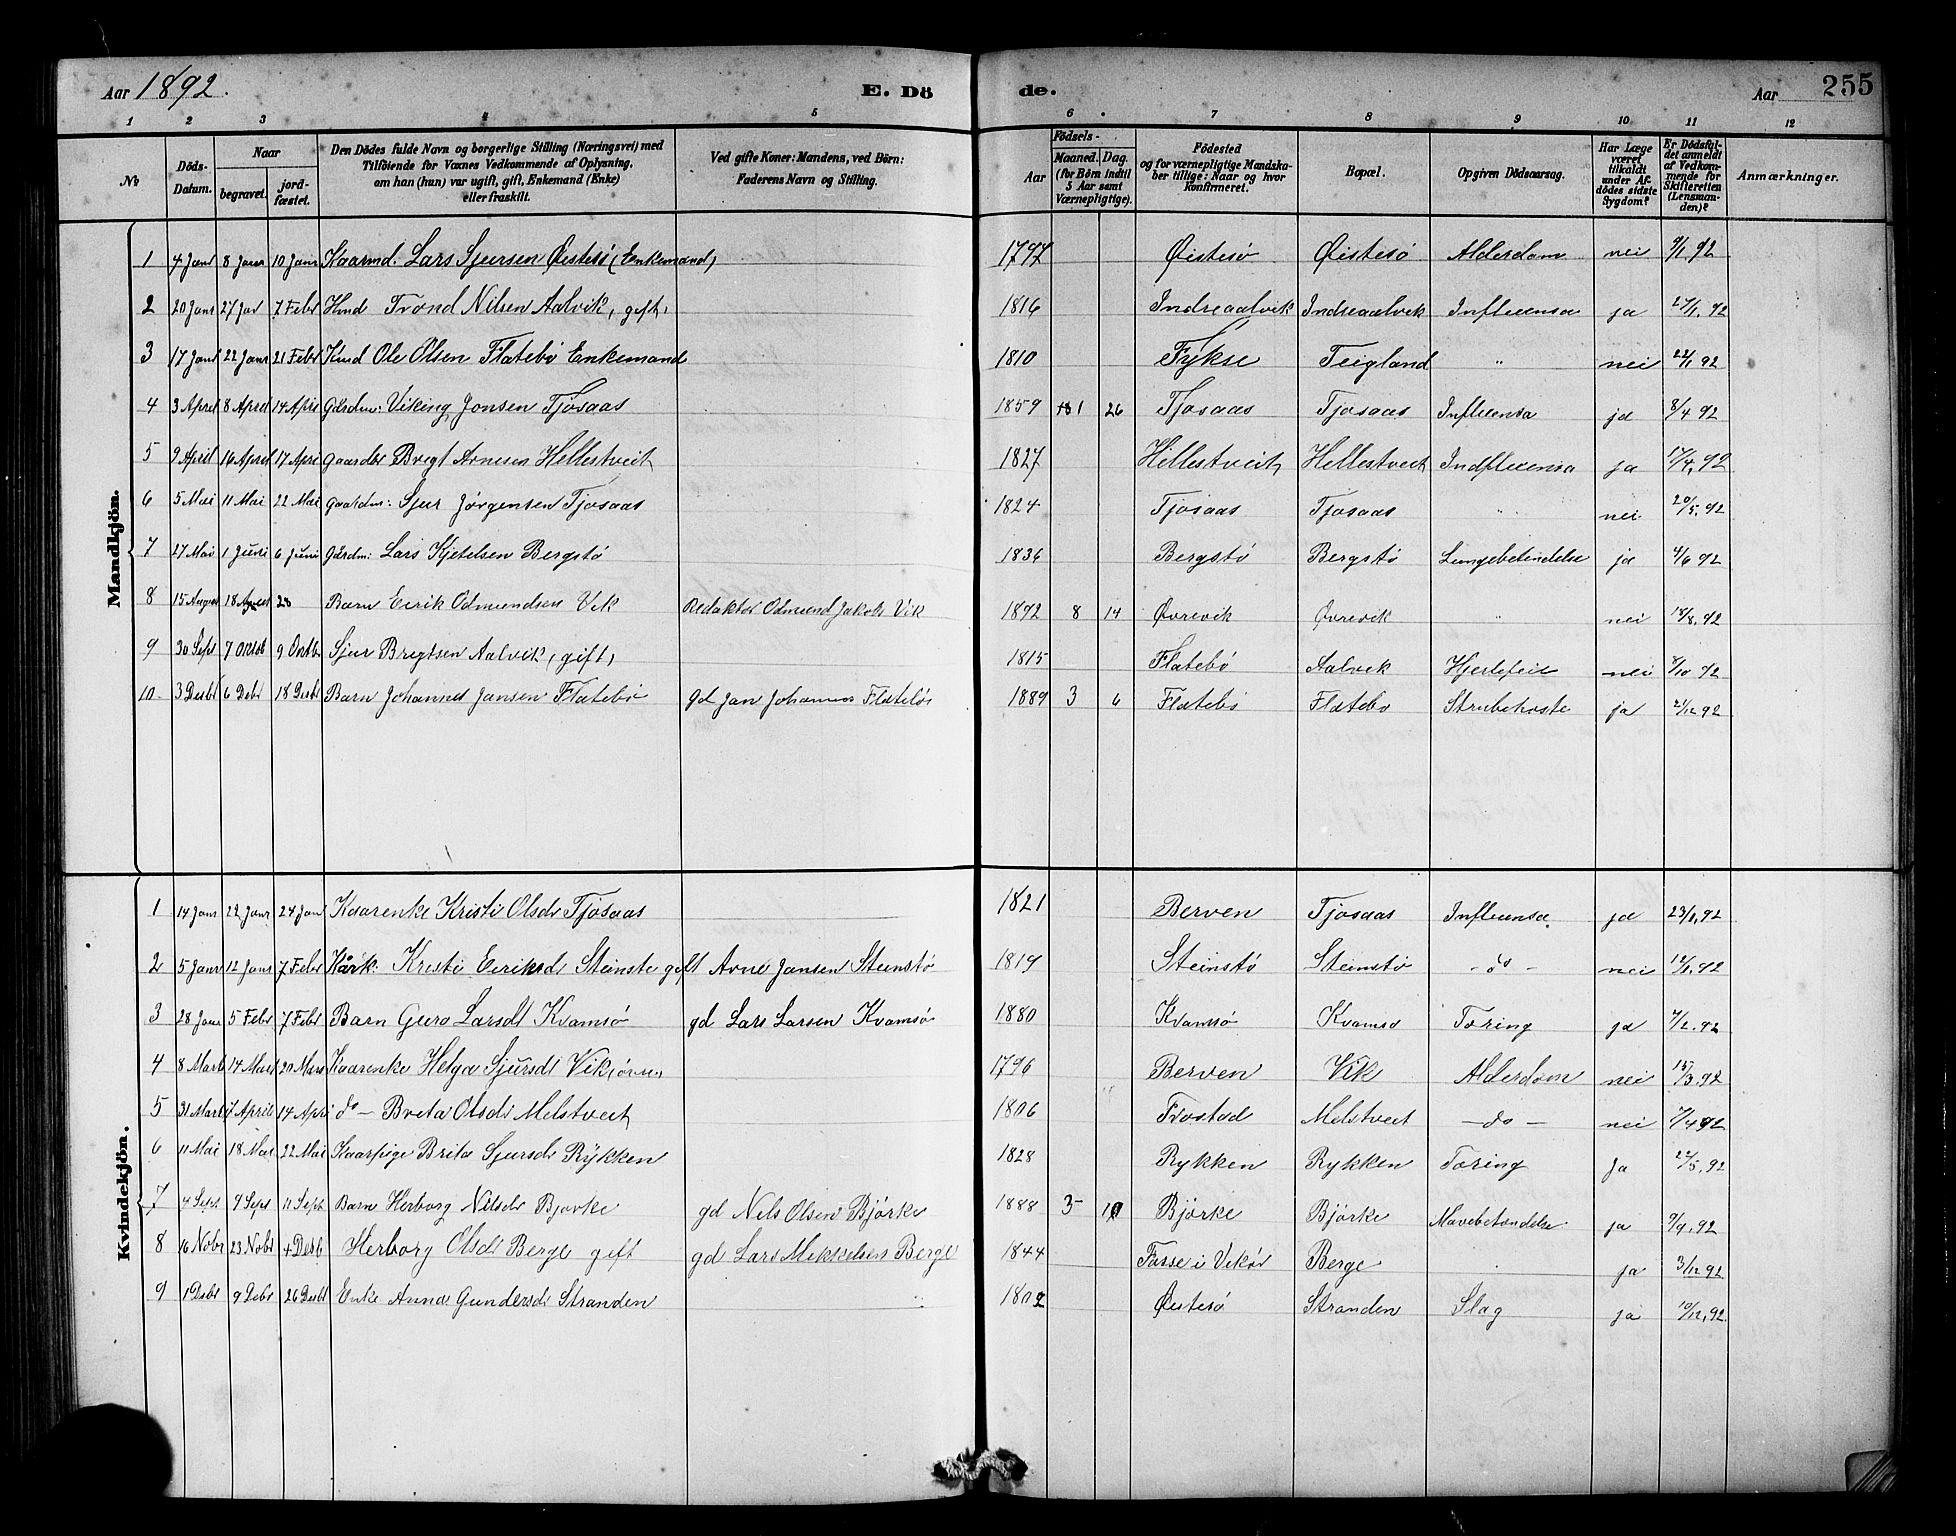 Aar 1892. E. Dö de. Aar 255
1 2 3 4 5 6 7 8 9 10 11 12
№ Döds-Datum. Naar begravet. jord-fæstet. Den Dödes fulde Navn og borgerlige Stilling (Næringsvei) med Tilföiende for Vaxnes Vedkommende af Oplysning, om han (hun) var ugift, gift, Enkemand (Enke) eller fraskilt. Ved gifte Koner: Mandens, ved Börn: Faderens Navn og Stilling. Aar Födsels- Maaned. Dag. (for Börn indtil 5 Aar samt Værnepligtige). Födested og for værnepligtige Mandskaber tillige: Naar og hvor Konfirmeret. Bopæl. Opgiven Dödsaarsag. Har Læge været tilkaldt under Afdödes sidste Sygdom? Er Dödsfaldet anmeldt af Vedkommende for Skifteretten (Lensmanden)? Anmærkninger.
Mandkjön.
1 4 Janr 8 Janr 10 Janr Kaarmd. Lars Sjursen Øistesö (Enkemand) 1797 Øistesö Øistesö Alderdom nei 9/1 92
2 20 Janr 27 Jar 7 Febr Kmd Trond Nilsen Aalvik, gift, 1816 Indreaalvik Indreaalvik Influensa ja 27/1, 92
3 17 Janr 22 Janr 21 Febr Kmd Ole Olsen Flatebö Enkemand 1810 Fykse Teigland " nei 22/1 92
4 3 April 8 April 14 Apri Gardm: Viking Jonsen Tjosaas 1859 1 26 Tjosaas Tjosaas Influensa ja 8/4 92
5 9 April 16 April 17 Apri Gaardbr Bregt Arnesen Hellestveit 1827 Hillestveit Hellestveit Indfluensa ja 17/4, 92
6 5 Mai 11 Mai 22 Mai Gaardm: Sjur Jörgensen Tjosaas 1824 Tjosaas Tjosaas " nei 20/5, 92
7 27 Mai 1 Juni 6 Juni Gardm: Lars Kjetelsen Bergstö 1836 Bergstö Bergstö Lungebetendelse ja 4/6 92
8 15 August 18 August 28 Barn Eirik Odmundsen Vik Redaktör Odmund Jakobs Vik 1892 8 14 Øvrevik Øvrevik " nei 18/8, 92
9 30 Sept 7 Oktb 9 Oktb Sjur Bregtsen Aalvik, gift, 1815 Flatebö Aalvik Hjertefeil nei 8/10 92
10 3 Desbr 6 Debr 18 Desbr Barn Johannes Jansen Flatebö gd Jan Johannes Flatebö 1889 3 6 Flatebö Flatebo Strubehoste ja 21/12 92
Kvindekjön.
1 14 Janr 22 Janr 24 Jan Kaarenke Kristi Olsdr Tjosaas 1821 Berven Tjosaas Influensa ja 23/1, 92
2 5 Janr 12 Janr 7 Febr Kårk: Kristi Eiriksdr Steinstø gift Arne Jansen Steinstö 1819 Steinstö Steinstö - do - nei 12/1, 92
3 28 Janr 5 Febr 7 Febr Barn Guro Larsdt Kvamsö gd Lars Larsen Kvamsö 1880 Kvamsö Kvamsö Tæring ja 7/2. 92
4 8 Mart 14 Mart 20 Mars Kaarenke Helga Sjursdt Vikören 1796 Berven Vik Alderdom nei 15/3, 92
5 31 Mart 7 April 14 Apri do - Breta Olsdr Melstveit 1806 Trostad Melstveit - do - nei 7/4 92
6 11 Mai 18 Mai 22 Mai Kaarpige Brita Sjursdr Rykken 1828 Rykken Rykken Tæring ja 22/5, 92
7 4 Sept 9 Sept 11 Sept Barn Herborg Nilsdr Bjorke gd Nils Olsen Björke 1888 3 10 Björke Björke Mavebetændelse ja 9/9, 92
8 16 Nobr 23 Nobr 4 Desb Herborg Olsdr Berge gift gd Lars Mikkelsen Berge 1844 Fosse i Vikör Berge ja 3/12 92
9 1 Debr 9 Debr 26 Desbr Enke Anna Gundersdr Stranden 1802 Øistesö Stranden Slag ja 10/12, 92.